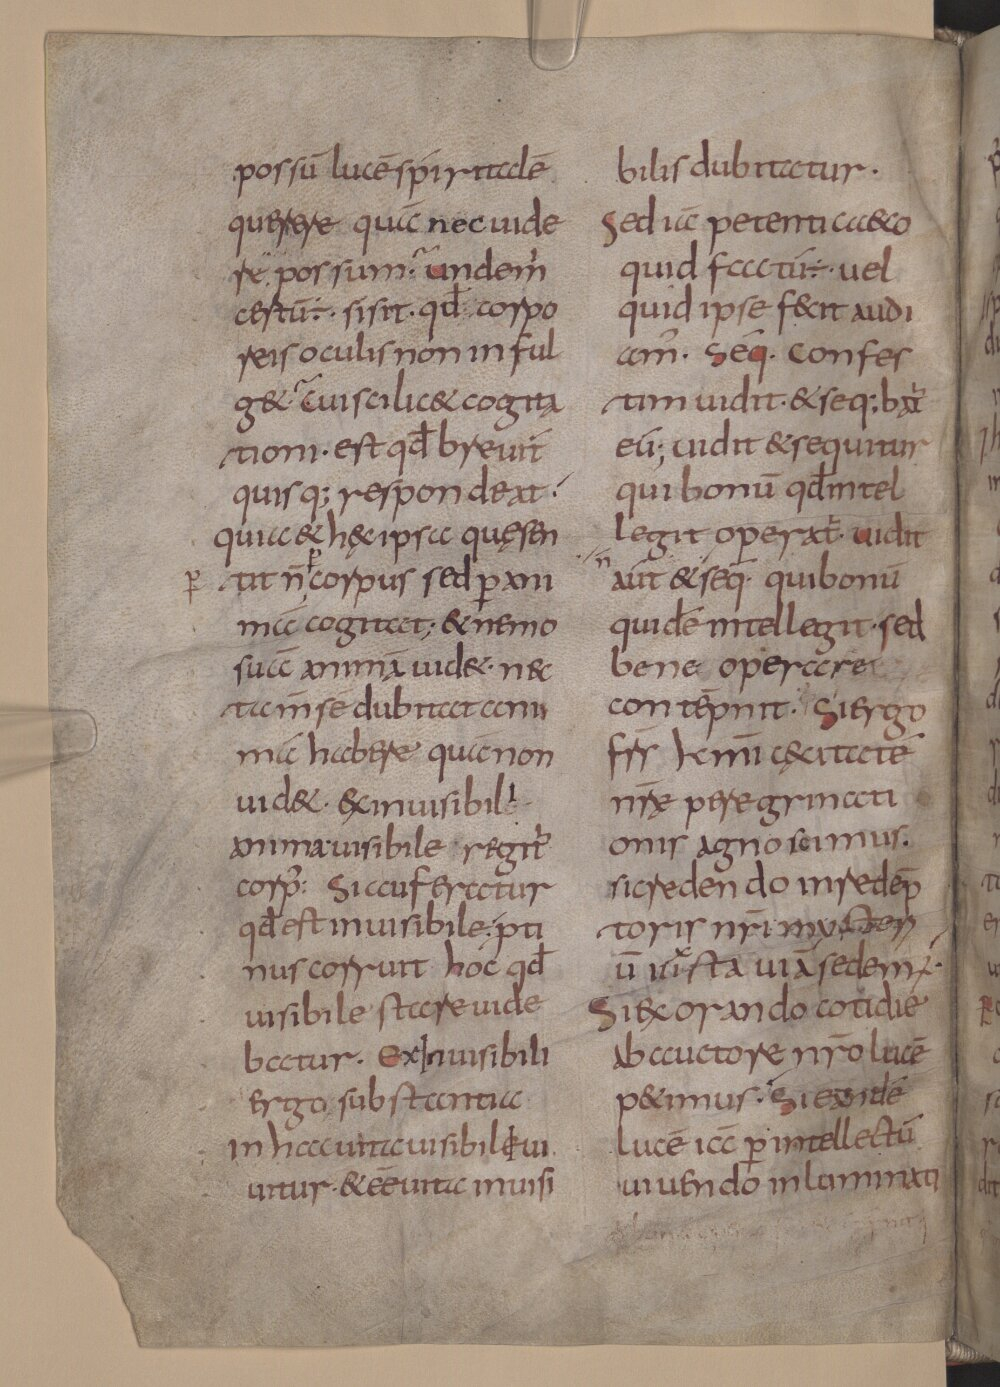 possū lucē spiritalē
querere quia nec uide
re possum· undem̄
certū÷· sisit· qđ corpo
reis oculis non inful
g& cuiscilic& cogita
tioni· est qđ breuit̄
quisq; respondeat·
quia & hęc ipsa quęsen
tit n̄ corpus sed p̲ ani
ma cogitat; & nemo
suā animā uid&· nec
tam̄ se dubitat ani
mā habere quā non
uid&· ex inuisibili
anima uisibile regit̄
corp̄· Si auferatur
qđ est inuisibile· pti
nus corruit hoc qđ
uisibile stare uide
batur· Ex inuisibili
ergo substantia
in hac uita uisibili ui
uitur· & eē uita inuisi
bilis dubitatur·
Sed iā petenti caeco
quid factū÷· uel
quid ipse fecit audi
am̄· Seq̄· Confes
tim uidit· & seq;bat̄
eū; uidit & sequitur
qui bonū qđ intel
legit operat̄· uidit
aūt n̄ & seq̄· qui bonū
quidē intellegit· sed
bene operare
contēpnit· Si ergo
fr̄s k̄mi caecitatē
nr̄e peregrinati
onis agnoscimus·
si credendo in redēp
toris nr̄i mysteri
ū iuxta uiā sedem̄·
Si exorando cotidie
ab auctore nr̄o lucē
petimus· Si eandē
lucē iā p̲ intellectū
uiuendo inluminati